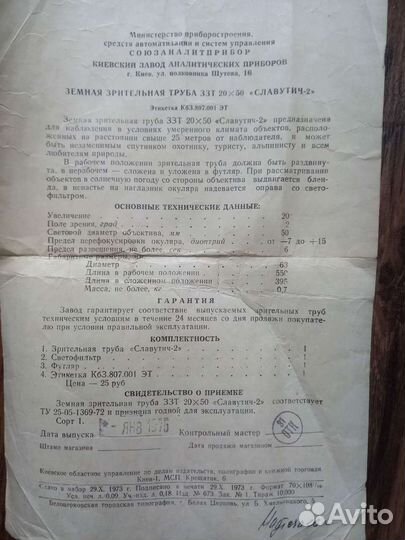 Министерство приборостроения,
средств автоматизации и систем управления
СОЮЗАНАЛИТПРИБОР
КИЕВСКИЙ ЗАВОД АНАЛИТИЧЕСКИХ ПРИБОРОВ
г. Киев, ул. полковника Шутова, 16
ЗЕМНАЯ ЗРИТЕЛЬНАЯ ТРУБА ЗЗТ 20×50 «СЛАВУТИЧ-2»
Этикетка К63.807.001 ЭТ
Земная зрительная труба ЗЗТ 20×50 «Славутич-2» предназначена
для наблюдения в условиях умеренного климата объектов, располо-
женных на расстоянии свыше 25 метров от наблюдателя, и может
быть незаменимым спутником охотнику, туристу, альпинисту и всем
любителям природы.
В рабочем положении зрительная труба должна быть раздвину-
та, в нерабочем — сложена и уложена в футляр. При рассматривании
объектов в солнечную погоду со стороны объектива выдвигается блен-
да, в ненастье на наглазник окуляра надевается оправа со свето-
фильтром.
ОСНОВНЫЕ ТЕХНИЧЕСКИЕ ДАННЫЕ:
Увеличение . . . 20
Поле зрения, град . . . 2
Световой диаметр объектива, мм . . . 50
Предел перефокусировки окуляра, диоптрий . . . от —7 до +15
Предел разрешения, не более, сек . . . 6
Габаритные размеры, мм
Диаметр . . . 63
Длина в рабочем положении . . . 550
Длина в сложенном положении . . . 395
Масса, не более, кг . . . 0,7
ГАРАНТИЯ
Завод гарантирует соответствие выпускаемых зрительных труб
техническим условиям в течение 24 месяцев со дня продажи покупате-
лю при условии правильной эксплуатации.
КОМПЛЕКТНОСТЬ
1. Зрительная труба «Славутич-2» . . . 1
2. Светофильтр . . . 1
3. Футляр . . . 1
4. Этикетка К63.807.001 ЭТ . . . 1
Цена — 25 руб
СВИДЕТЕЛЬСТВО О ПРИЕМКЕ
Земная зрительная труба ЗЗТ 20×50 «Славутич-2» соответствует
ТУ 25-05-1369-72 и признана годной для эксплуатации.
Сорт I.
Дата выпуска ЯНВ 1975 Контрольный мастер ОТК
Штамп магазина Дата продажи магазином
Киевское областное управление по делам издательств, полиграфии и книжной торговли
Киев-1, МСП, Крещатик, 6.
Сдано в набор 29.X. 1973 г. Подписано к печати 29.X. 1973 г. Формат 70×108/
Усл. печ. л. 0,09. Уч.-изд. л. 0,18. Изд. № 673. Зак. № 1. Тираж 10.000
Белоцерковская городская типография, г. Белая Церковь, ул. Б. Хмельницкого,
Avito